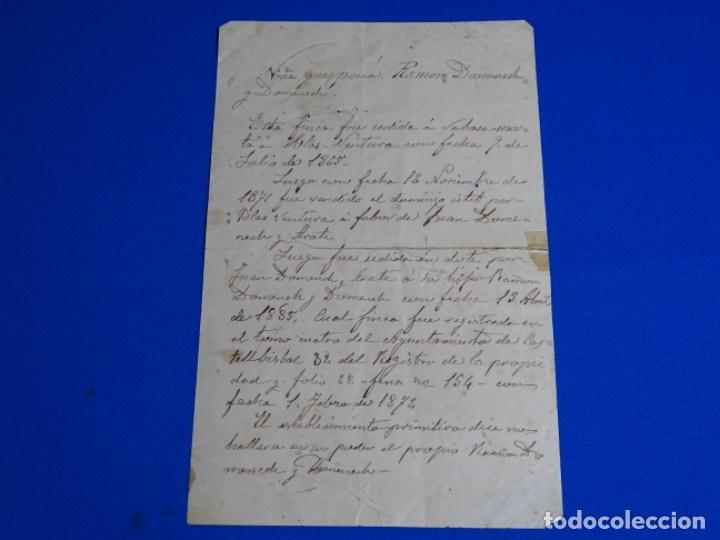 Viña que poseá Ramon Domenech
y Domenech.
Esta finca fue cedida á rabasa mor-
ta á Blas Ventura con fecha 9 de
Julio de 1865-
Luego con fecha 12 Noviembre de
1871 fue vendido el dominio util por
Blas Ventura á fabor de Juan Dome-
nech y Arate
Luego fue cedida en dote por
Juan Domenech y Arate á su hijo Ramon
Domenech y Domenech con fecha 13 Abril
de 1885. Cual finca fue registrada en
el tomo cuatro del Ayuntamiento de Cas-
tellbisbal 32 del Registro de la propie
dad y folio 28 - finca no 154 - con
fecha 1. Febro de 1872
El establecimiento primitivo dice no
hallarse en su poder el propio Ramon Do
menech y Domenech
todocoleccion
todocoleccion.net